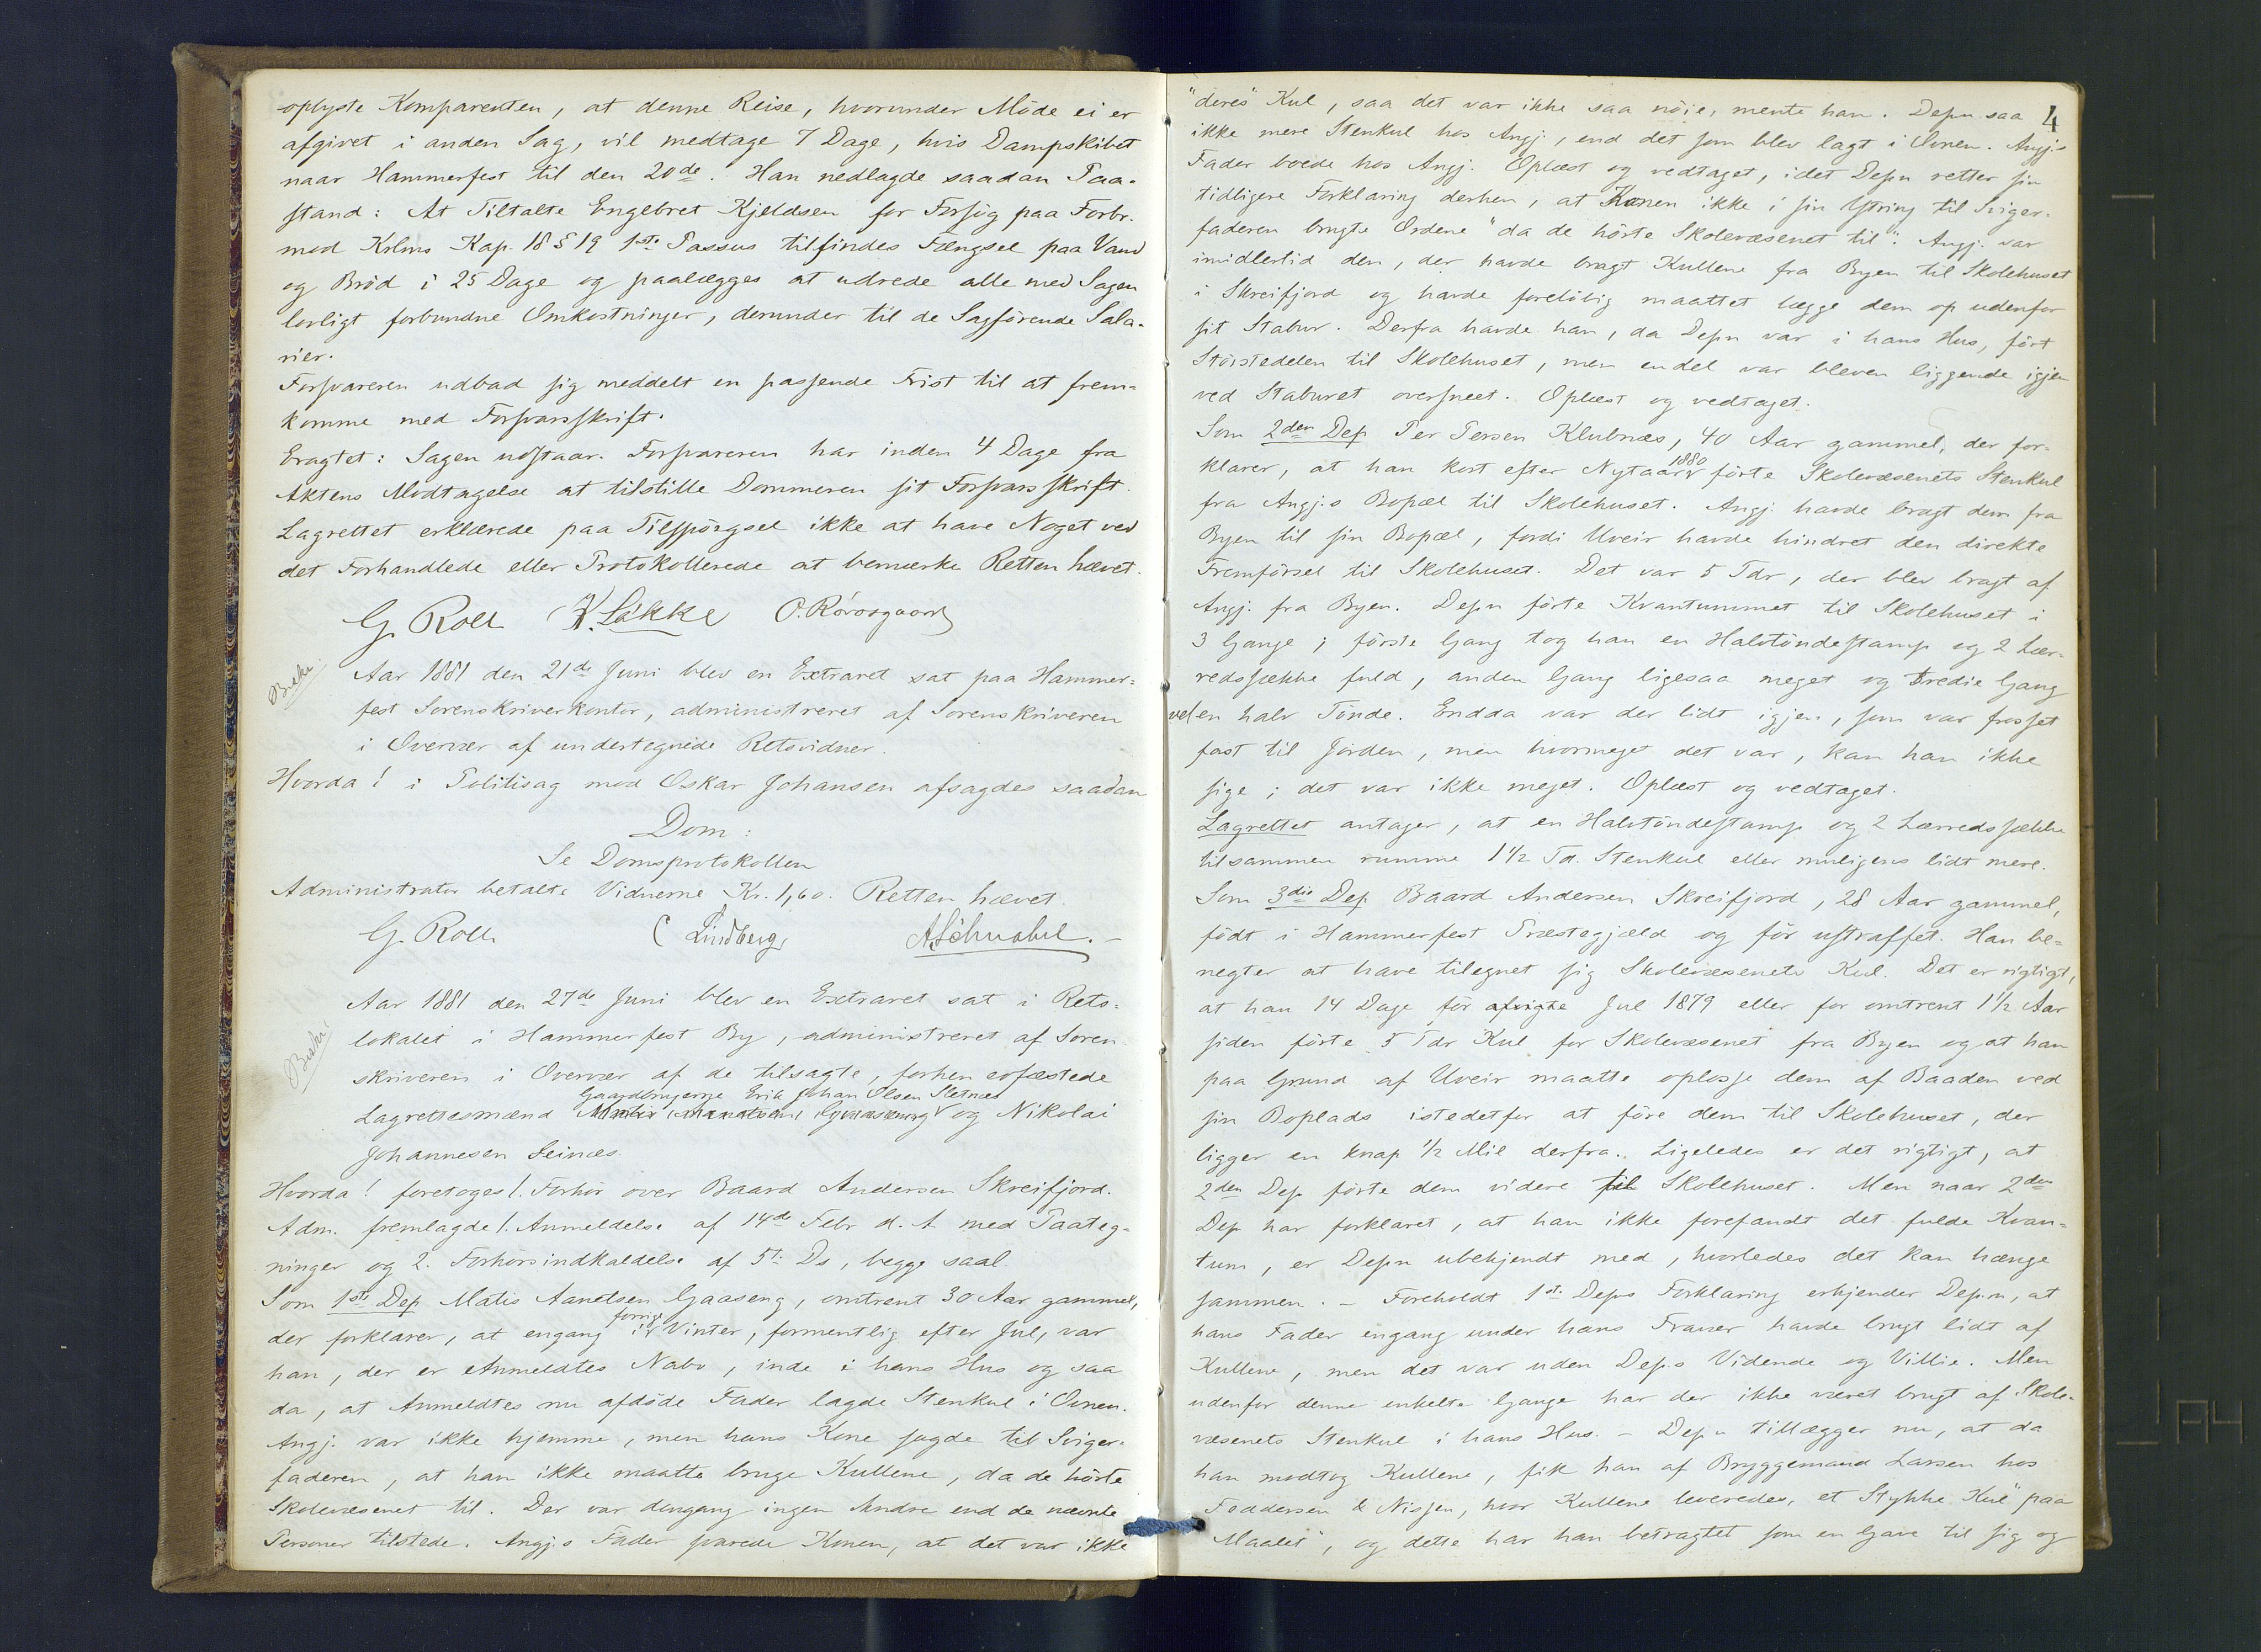 oplyste Komparenten, at denne Reise, hvorunder Møde ei er
afgivet i anden Sag, vil medtage 7 Dage, hvis Dampskibet
naar Hammerfest til den 20de. Han nedlagde saadan Paa-
stand: At Tiltalte Engebret Kjeldsen for Forsøg paa Forbr.
mod Krlms Kap. 18 § 19 1ste Passus tilfindes Fængsel paa Vand
og Brød i 25 Dage og paalægges at udrede alle med Sagen
lovligt forbundne Omkostninger, derunder til de Sagførende Sala-
rier.
Forsvareren udbad sig meddelt en passende Frist til at frem-
komme med Forsvarsskrift.
Eragtet: Sagen udstaar. Forsvareren har inden 4 Dage fra
Aktens Modtagelse at tilstille Dommeren sit Forsvarsskrift.
Lagrettet erklærede paa Tilspørgsel ikke at have Noget ved
det Forhandlede eller Protokollerede at bemærke Retten hævet.
G. Roll K. Løkke O. Rørosgaard
Besk.
Aar 1881 den 21de Juni blev en Extraret sat paa Hammer-
fest Sorenskriverkontor, administreret af Sorenskriveren
i Overvær af undertegnede Retsvidner.
Hvorda! i Politisag mod Oskar Johansen afsagdes saadan
Dom:
Se Domsprotokollen
Administrator betalte Vidnerne Kr. 1,60. Retten hævet.
G. Roll C Lindberg A. Schnabel.-
Besk.
Aar 1881 den 27de Juni blev en Extraret sat i Rets-
lokalet i Hammerfest By, administreret af Soren
skriveren i Overvær af de tilsagte, forhen edfæstede
Gaardbrugerne Erik Johan Olsen Sletnæs
Lagrettesmænd og Nikolai
Johannesen Leinæs.
Hvorda! foretoges 1. Forhør over Baard Andersen Skreifjord.
Adm. fremlagde 1. Anmeldelse af 14de Febr d. A. med Paateg-
ninger og 2. Forhørsindkaldelse af 5te Ds, begge saal.
Som 1ste Dep Matis Aanetsen Gaaseng, omtrent 30 Aar gammel,
forrige
der forklarer, at engang i Vinter, formentlig efter Jul, var
han, der er Anmeldtes Nabo, inde i hans Hus og saa
da, at Anmeldtes nu afdøde Fader lagde Stenkul i Ovnen.
Angj. var ikke hjemme, men hans Kone sagde til Sviger-
faderen, at han ikke maatte bruge Kullene, da de hørte
Skolevæsenet til. Der var dengang ingen Andre end de nævnte
Personer tilstede. Angj.s Fader svarede Konen, at det var ikke
4
"deres" Kul, saa det var ikke saa nøie, mente han. Depn saa
ikke mere Stenkul hos Angj., end det som blev lagt i Ovnen. Angj.s
Fader boede hos Angj. Oplæst og vedtaget, idet Depn retter sin
tidligere Forklaring derhen, at Konen ikke i sin Ytring til Sviger-
faderen brugte Ordene "da de hørte Skolevæsenet til". Angj. var
imidlertid den, der havde bragt Kullene fra Byen til Skolehuset
i Skreifjord og havde foreløbig maattet lægge dem op udenfor
sit Stabur. Derfra havde han, da Depn var i hans Hus, ført
Størstedelen til Skolehuset, men endel var bleven liggende igjen
ved Staburet oversneet. Oplæst og vedtaget.
Som 2den Dep Per Persen Klubnæs, 40 Aar gammel, der for-
1880
klarer, at han kort efter Nytaar førte Skolevæsenets Stenkul
fra Angj.s Bopæl til Skolehuset. Angj. havde bragt dem fra
Byen til sin Bopæl, fordi Uveir havde hindret den direkte
Fremførsel til Skolehuset. Det var 5 Tdr, der blev bragt af
Angj. fra Byen. Depn førte Kvantummet til Skolehuset i
3 Gange; første Gang tog han en Halvtøndestamp og 2 Lær-
redssække fuld, anden Gang ligesaa meget og tredie Gang
vel en halv Tønde. Endda var der lidt igjen, som var frosset
fast til Jorden, men hvormeget det var, kan han ikke
sige; det var ikke meget. Oplæst og vedtaget.
Lagrettet antager, at en Halvtøndestamp og 2 Lærredssække
tilsammen rumme 1½ Td. Stenkul eller muligens lidt mere.
Som 3die Dep Baard Andersen Skreifjord, 28 Aar gammel,
født i Hammerfest Præstegjæld og før ustraffet. Han be-
negter at have tilegnet sig Skolevæsenets Kul. Det er rigtigt,
at han 14 Dage før afvigte Jul 1879 eller for omtrent 1½ Aar
siden førte 5 Tdr Kul for Skolevæsenet fra Byen og at han
paa Grund af Uveir maatte oplosse dem af Baaden ved
sin Boplads istedetfor at føre dem til Skolehuset, der
ligger en knap ½ Mil derfra. Ligeledes er det rigtigt, at
2den Dep førte dem videre til Skolehuset. Men naar 2den
Dep har forklaret, at han ikke forefandt det fulde Kvan-
tum, er Depn ubekjendt med, hvorledes det kan hænge
sammen. - Foreholdt 1ste Deps Forklaring erkjender Dep.n, at
hans Fader engang under hans Fravær havde brugt lidt af
Kullene, men det var uden Dep.s Vidende og Villie. Men
udenfor denne enkelte Gange har der ikke været brugt af Skole-
væsenets Stenkul i hans Hus. - Depn tillægger nu, at da
han modtog Kullene, fik han af Bryggemand Larsen hos
Feddersen & Nissen, hvor Kullene leveredes, et Stykke Kul "paa
Maalet", og dette har han betragtet som en Gave til sig og